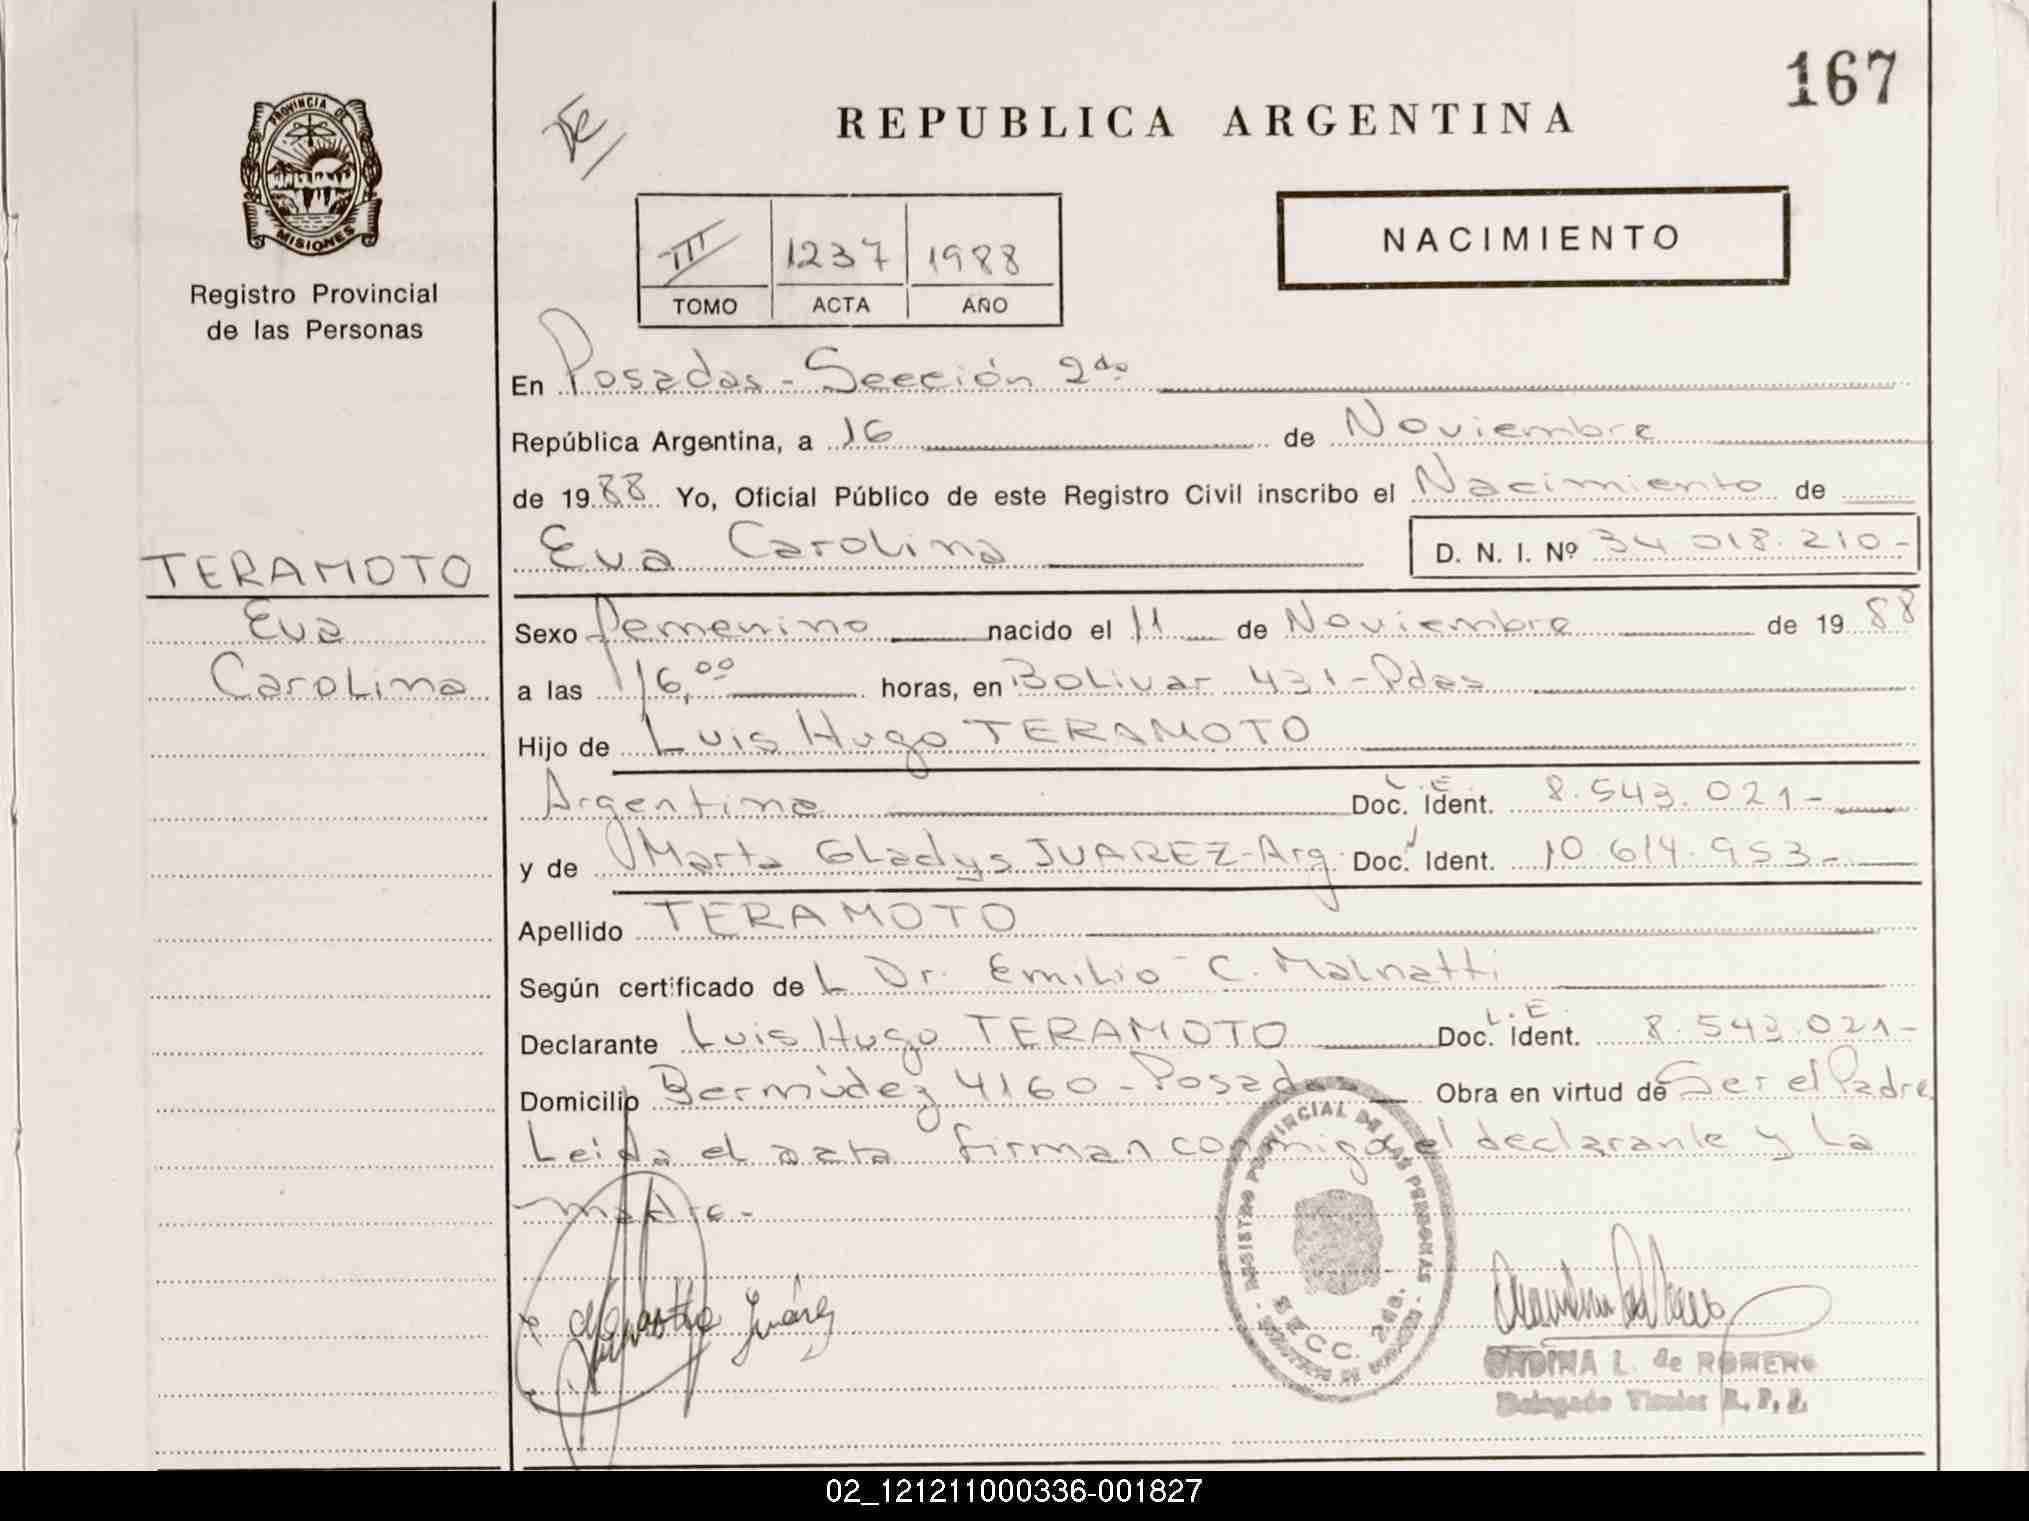 167
REPUBLICA ARGENTINA
PROVINCIA DE
MISIONES
Registro Provincial
de las Personas
NACIMIENTO
III 1237 1988
TOMO ACTA AÑO
En Posadas - Sección 2da
República Argentina, a 16 de Noviembre
de 1988 Yo, Oficial Público de este Registro Civil inscribo el Nacimiento de
Eva Carolina D. N. I. Nº 34 018.210-
TERAMOTO
Eva
Carolina
Sexo femenino nacido el 11 de Noviembre de 1988
a las 16,00 horas, en Bolivar 431 - Pdas
Hijo de Luis Hugo TERAMOTO
Argentina Doc. Ident. L.E. 8.543.021-
y de Marta Gladys JUAREZ - Arg. Doc. Ident. 10.614.953-
Apellido TERAMOTO
Según certificado de L Dr. Emilio C. Malnatti
Declarante Luis Hugo TERAMOTO Doc. Ident. L.E. 8.543.021-
Domicilio Bermúdez 4160 - Posadas Obra en virtud de Ser el Padre
Leída el acta firman conmigo el declarante y la
madre.-
Juárez
REGISTRO PROVINCIAL DE LAS PERSONAS
SECC. 2da.
ONDINA L. de ROMERO
Delegado Titular R. P. P.
02_121211000336-001827